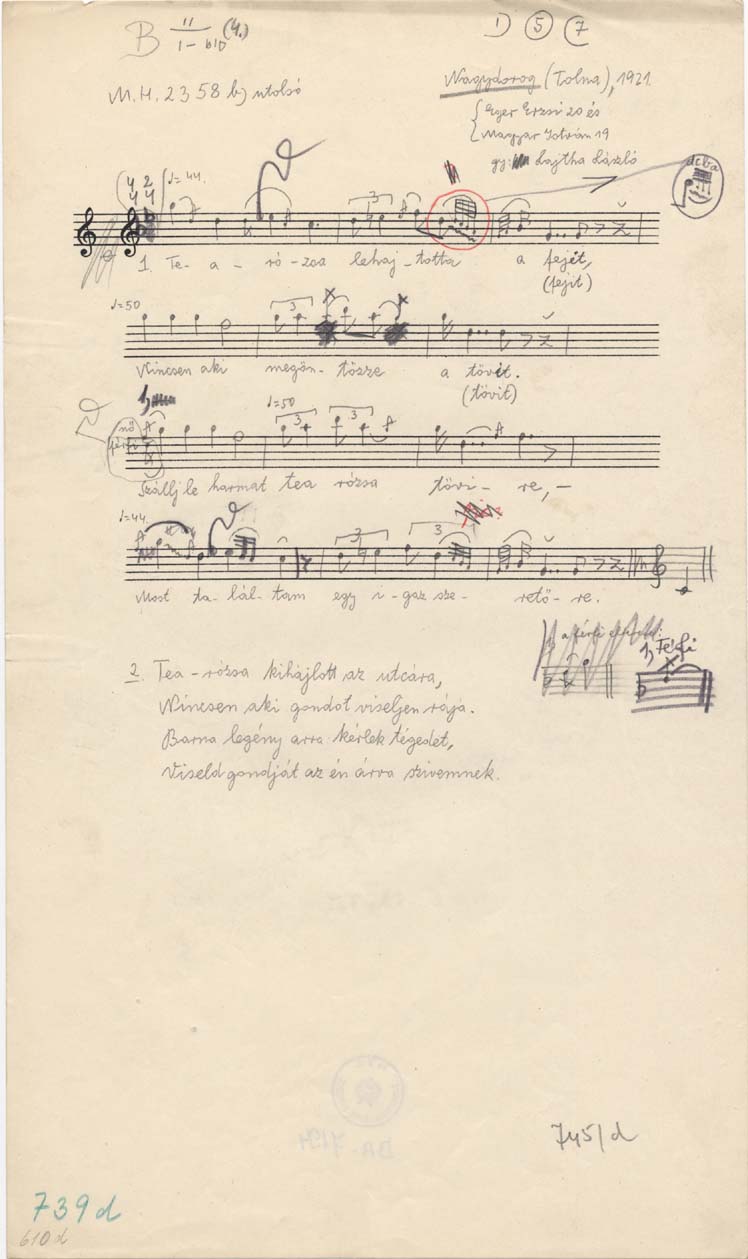 B II/I-b10 (4.)
1) 5 7
M.H. 2358 b) utolsó
Nagydorog (Tolna), 1921.
Eger Erzsi 20 és
Magyar István 19
gy: Lajtha László
dcba
4 2
4 4
♩=44.
3
1. Te-a-ró-zsa lehaj-totta a fejét,
(fejit)
♩=50
3
Nincsen aki megön-tözze a tövét.
(tövit)
1)
♩=50
nő
férfi
3 3
Szállj le harmat tea rózsa tövi-re,-
♩=44.
3 3
Most ta-lál-tam egy i-gaz sze-retö-re.
1) Férfi
2. Tea-rózsa kihajlott az utcára,
Nincsen aki gondot viseljen rája.
Barna legény arra kérlek tégedet,
Viseld gondját az én árva szivemnek.
745/d
739d
610d